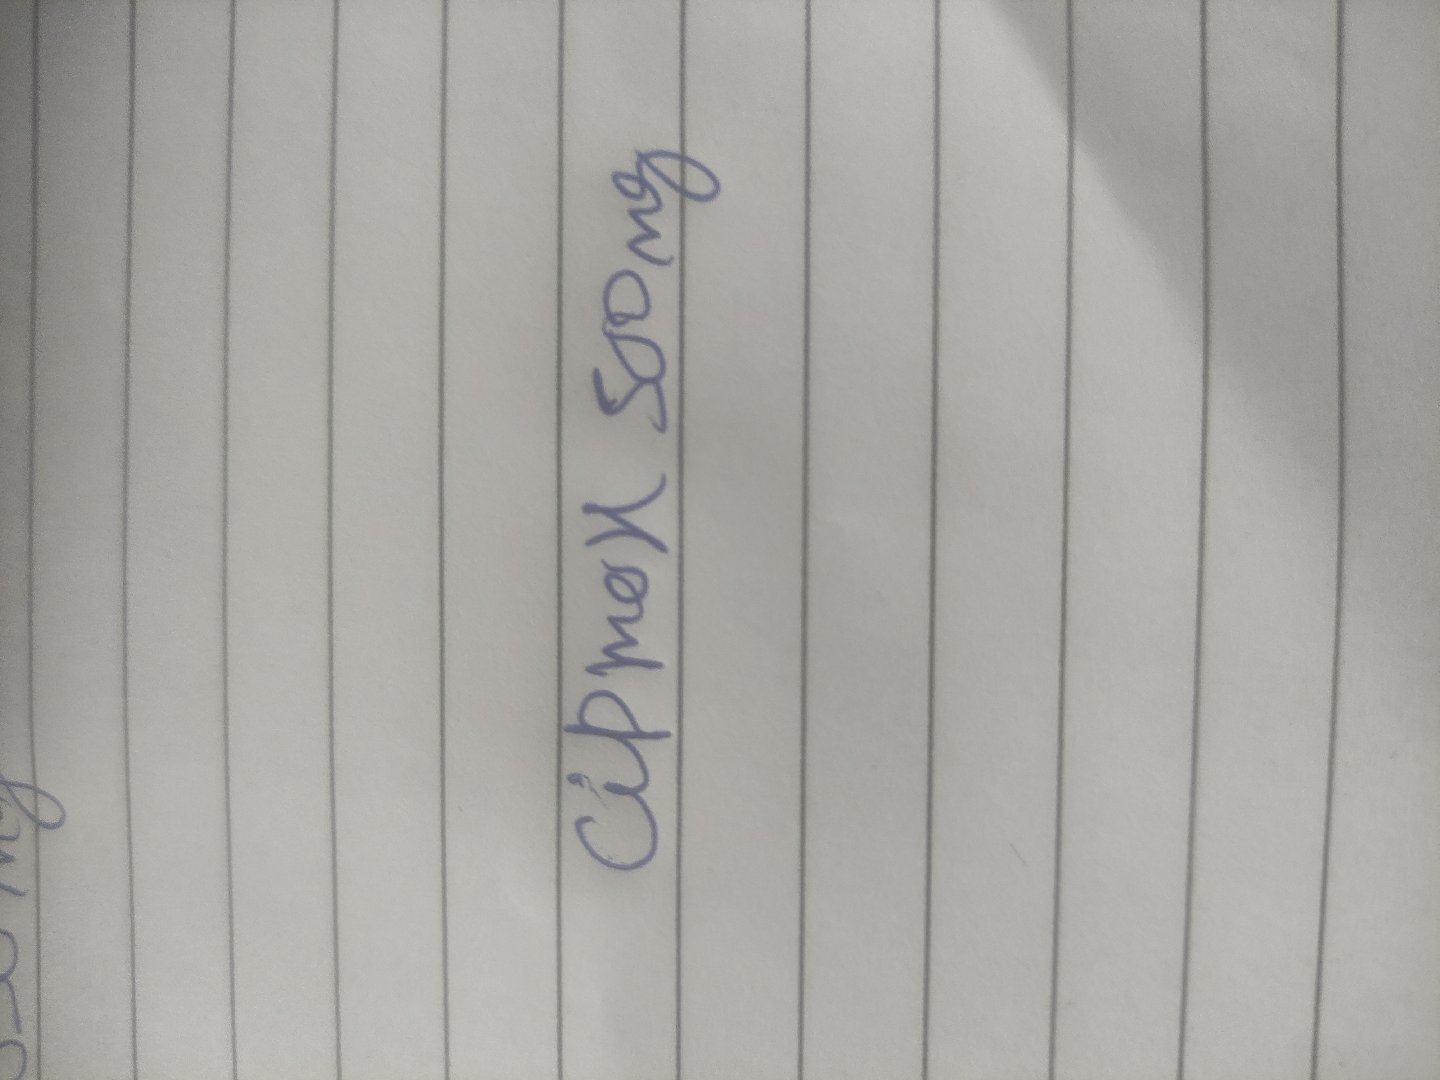 mg
Cipmox 500mg